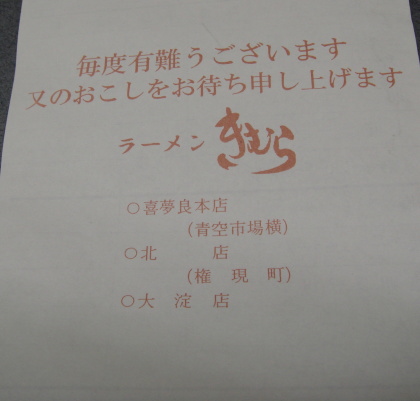 毎度有難うございます
又のおこしをお待ち申し上げます
ラーメン きむら
○喜夢良本店
(青空市場横)
○北 店
(権 現 町)
○大 淀 店